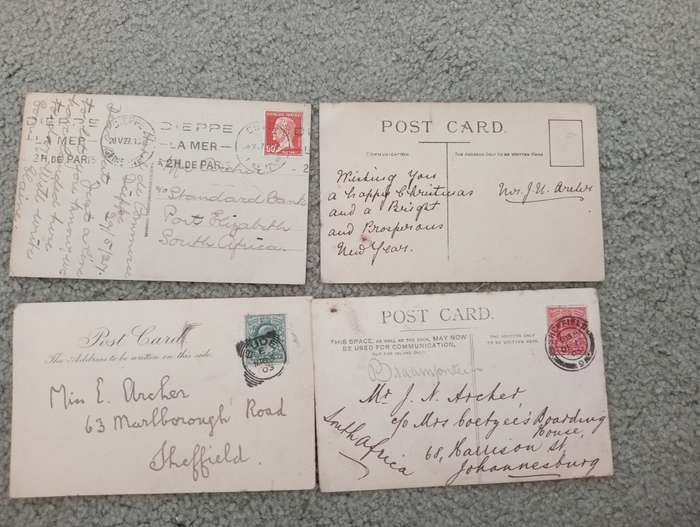 DIEPPE
LA MER
2H. DE PARIS
LA MER
2H. DE PARIS
50
Mr Archer
c/o Standard Bank
Port Elizabeth
South Africa
Dieppe
POST CARD.
COMMUNICATION
THE ADDRESS ONLY TO BE WRITTEN HERE
Wishing You
a Happy Christmas
and a Bright
and Prosperous
New Year.
Mr. J. N. Archer
Post Card
The Address to be written on this side
BUDE
03
Miss E. Archer
63 Marlborough Road
Sheffield
POST CARD.
THIS SPACE, AS WELL AS THE BACK, MAY NOW
BE USED FOR COMMUNICATION.
(FOR INLAND ONLY)
THE ADDRESS ONLY
TO BE WRITTEN HERE
SHEFFIELD
Braamfontein
Mr J. N. Archer
c/o Mrs Coetzee's Boarding
House,
68, Harrison St.
Johannesburg
South Africa